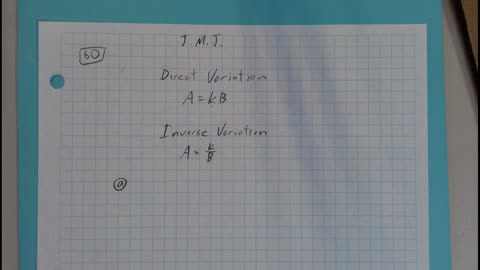 J. M. J.
60
Direct Variation
A = kB
Inverse Variation
A = k/B
a